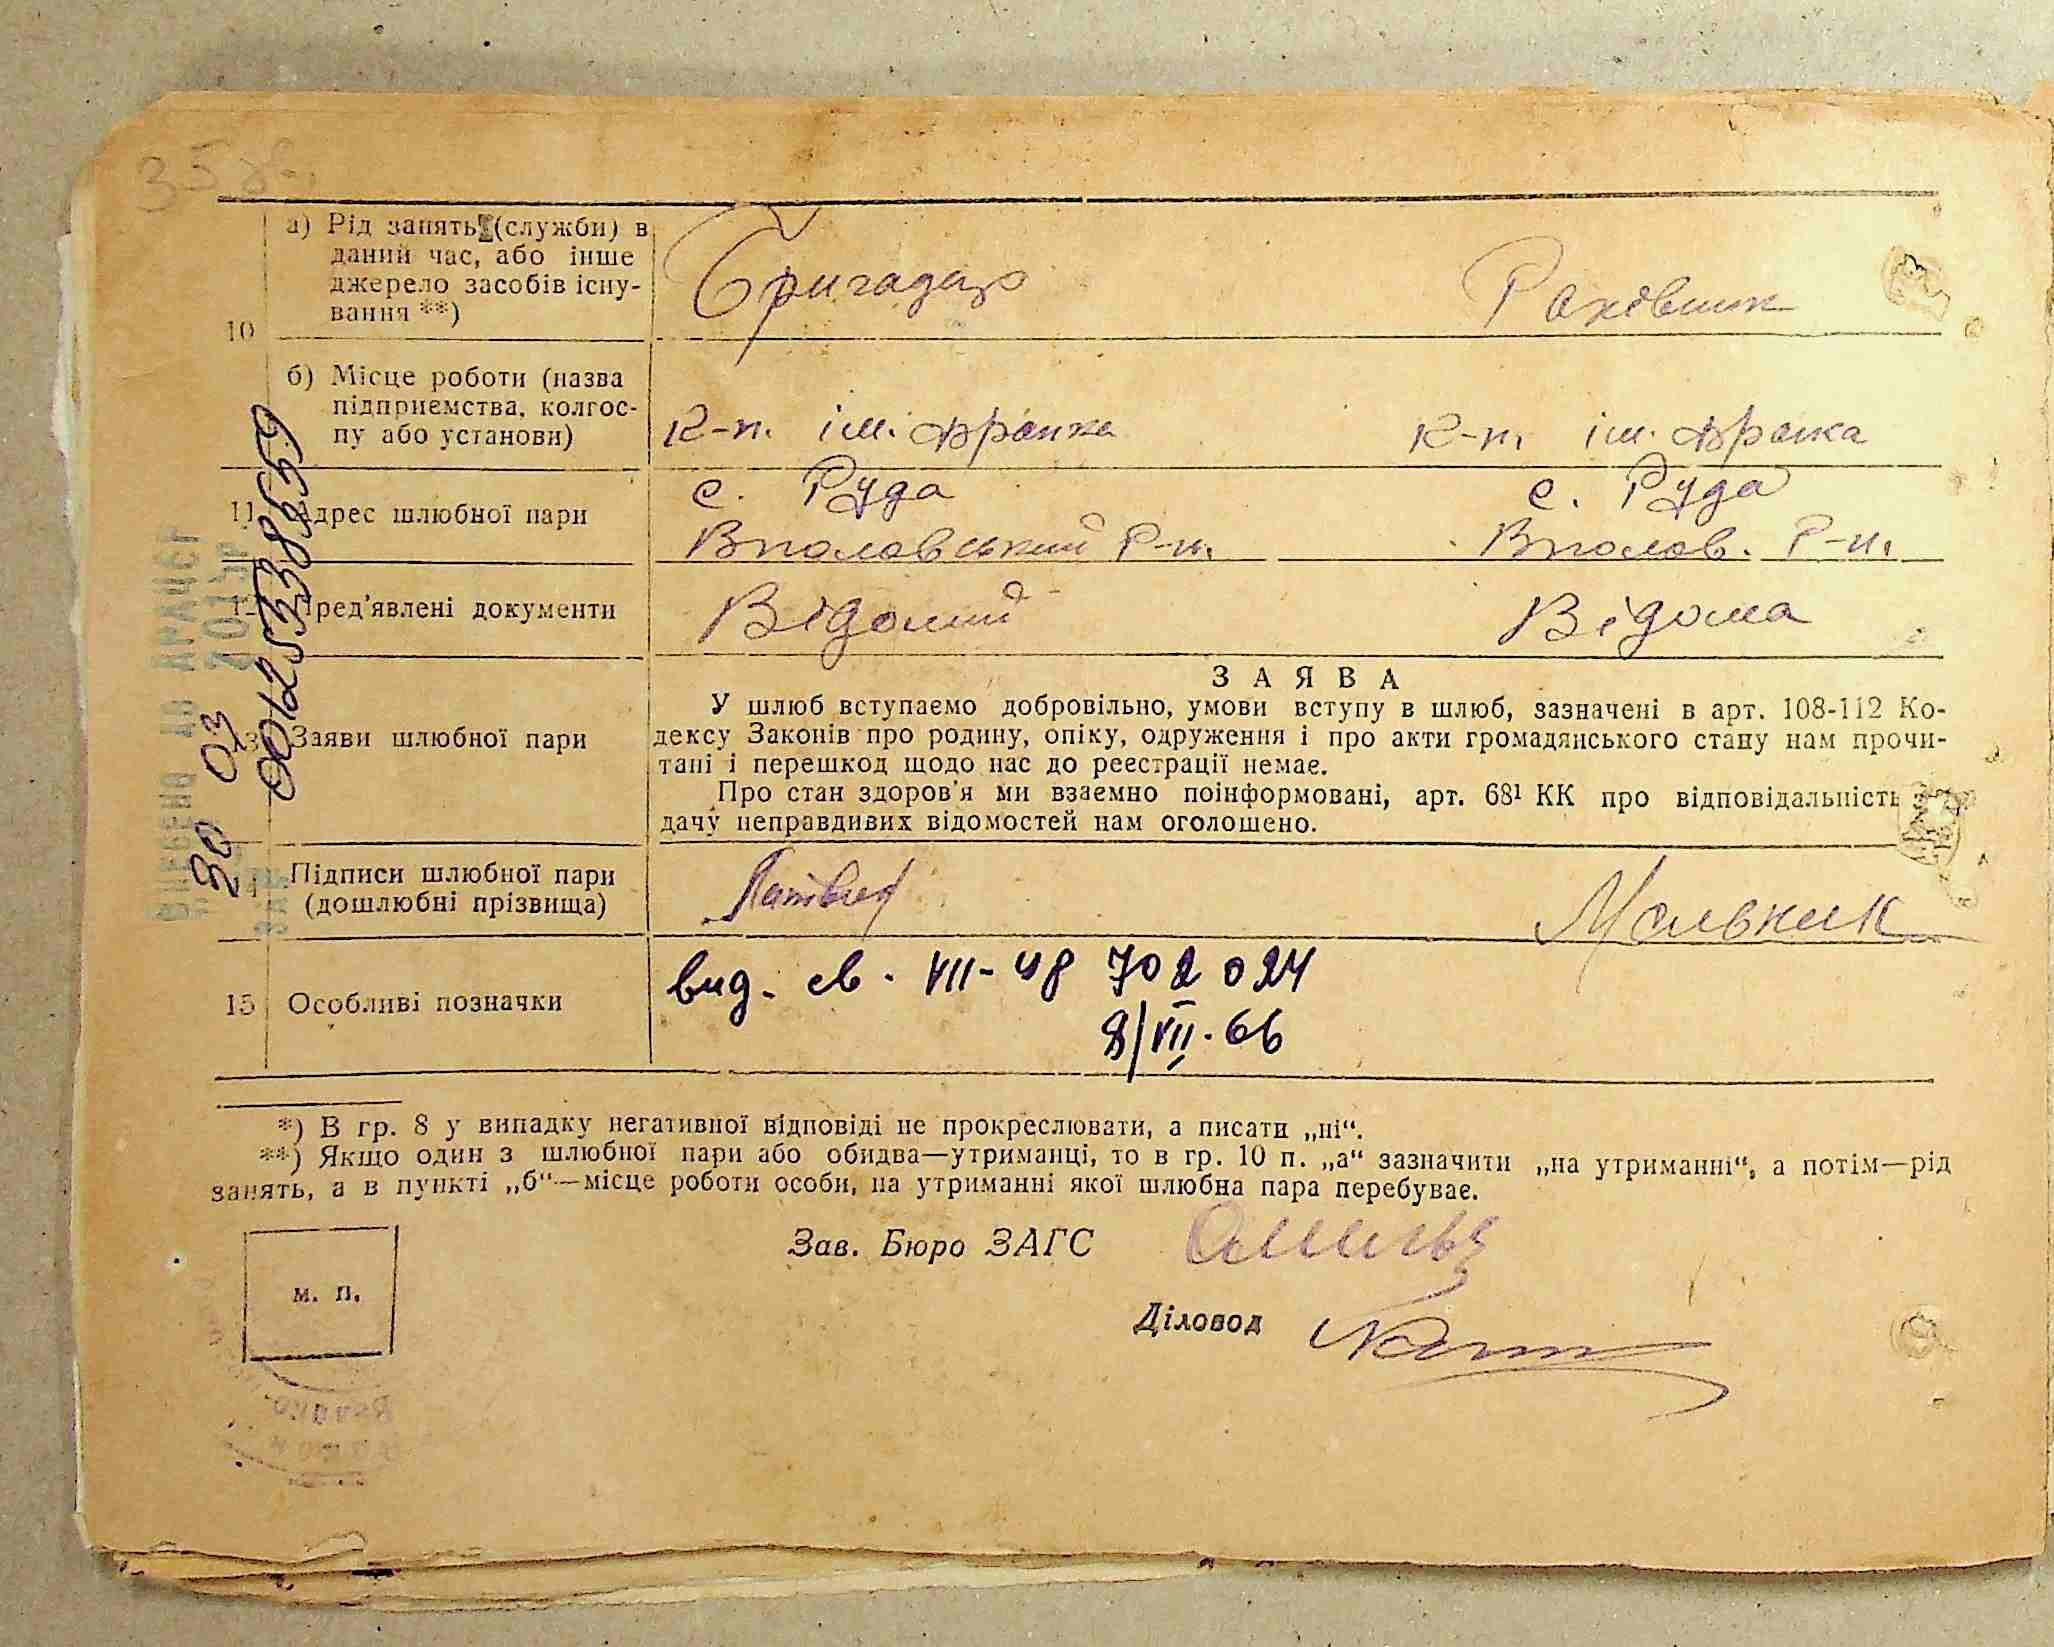 35
10
а) Рід занять (служби) в
даний час, або інше
джерело засобів існу-
вання **)
Бригадир
б) Місце роботи (назва
підприємства, колгос-
пу або установи)
К-п. ім. Франка
К-п. ім. Франка
11 Адрес шлюбної пари
с. Руда
с. Руда
Р-н.
Р-н.
12 Пред'явлені документи
Відомий
Відома
13 Заяви шлюбної пари
ЗАЯВА
У шлюб вступаємо добровільно, умови вступу в шлюб, зазначені в арт. 108-112 Ко-
дексу Законів про родину, опіку, одруження і про акти громадянського стану нам прочи-
тані і перешкод щодо нас до реєстрації немає.
Про стан здоров'я ми взаємно поінформовані, арт. 68¹ КК про відповідальність
дачу неправдивих відомостей нам оголошено.
14 Підписи шлюбної пари
(дошлюбні прізвища)
Мельник
15 Особливі позначки
вид. св. VII-ЧР 702024
8/VII.66
*) В гр. 8 у випадку негативної відповіді не прокреслювати, а писати „ні“.
**) Якщо один з шлюбної пари або обидва—утриманці, то в гр. 10 п. „а“ зазначити „на утриманні“, а потім—рід
занять, а в пункті „б“—місце роботи особи, на утриманні якої шлюбна пара перебуває.
Зав. Бюро ЗАГС
м. п.
Діловод
ВНЕСЕНО ДО ДРАЦСГ
20 03 201
00125338859